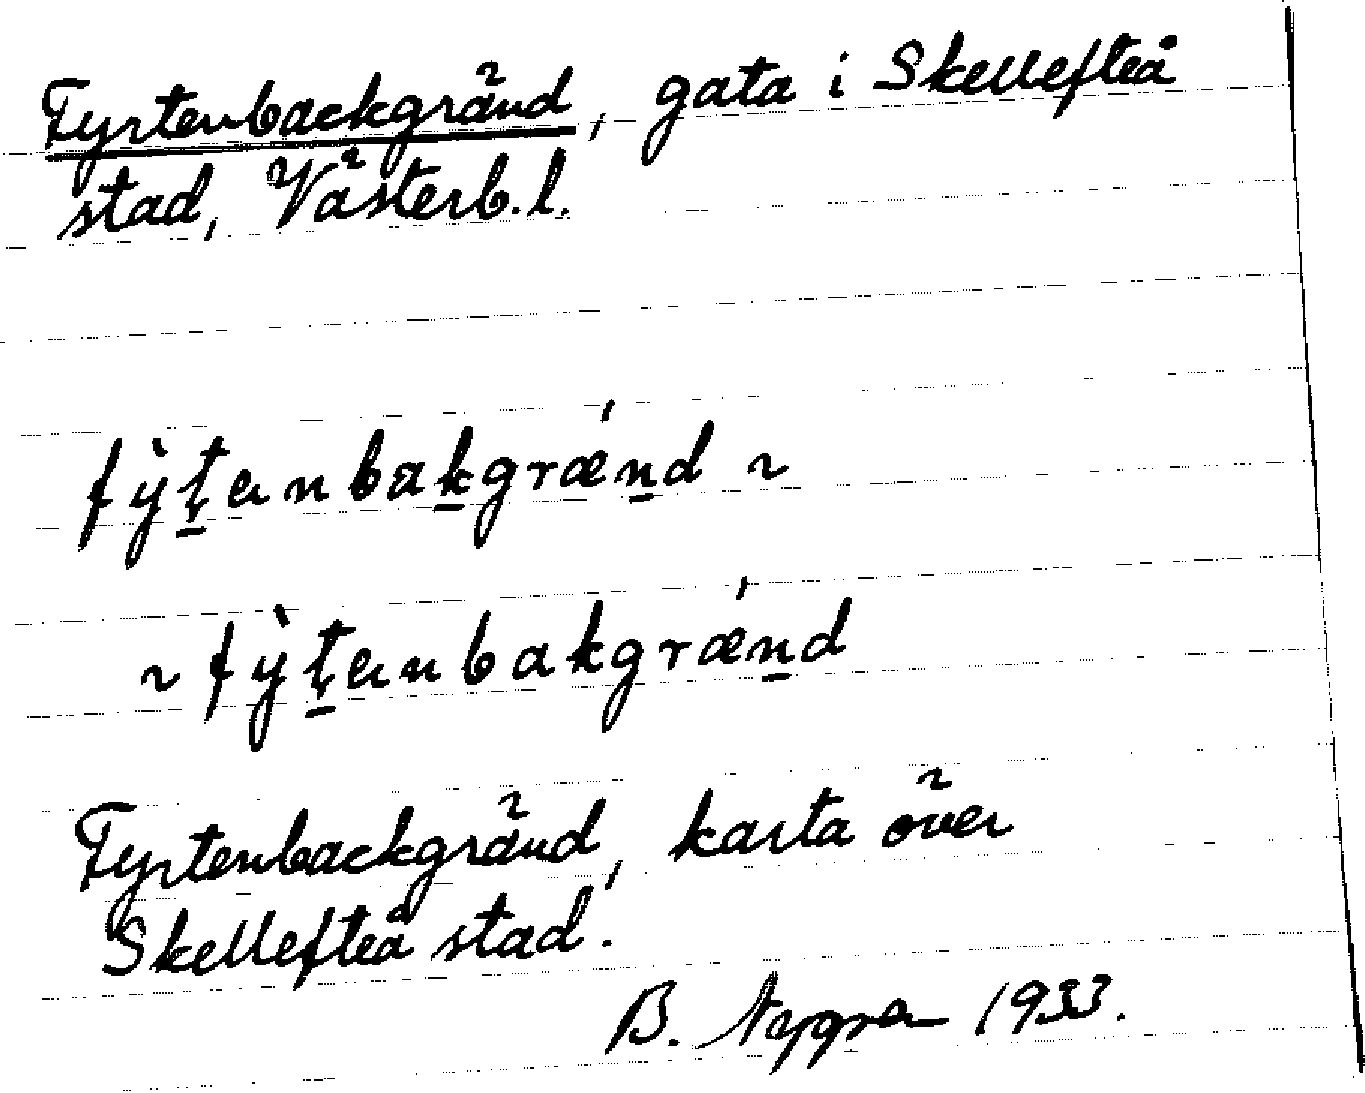 Fyrtenbackgränd, gata i Skellefteå
stad, Västerb.l.
fỳţenbakgrǽnd ~
~ fỳţenbakgrǽnd
Fyrtenbackgränd, karta över
Skellefteå stad.
B. Nygren 1933.